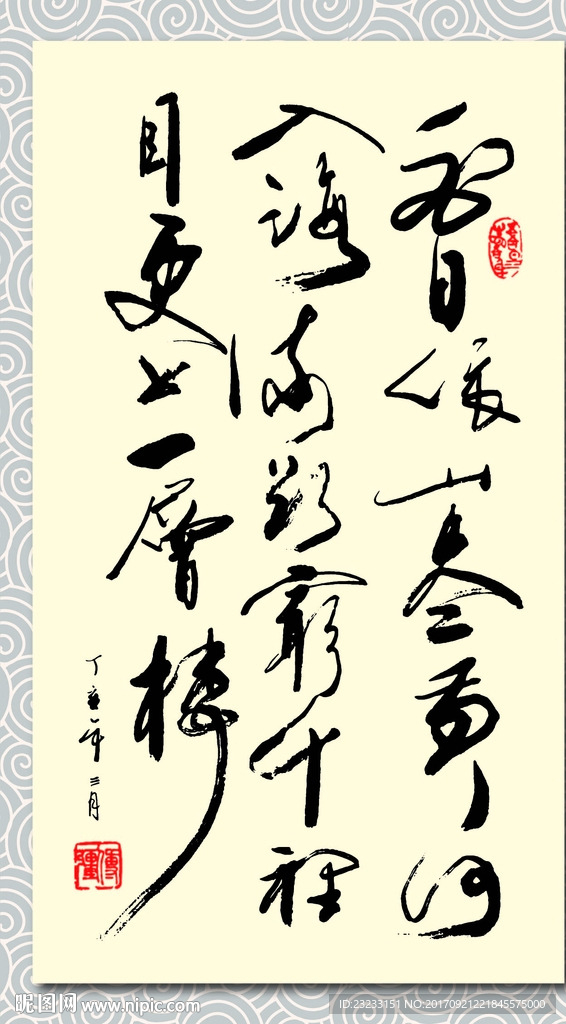 白日依山盡黃河
入海流欲窮千裡
目更上一層樓
丁亥年三月
昵图网 www.nipic.com
ID:23233151 NO:20170921221845575000